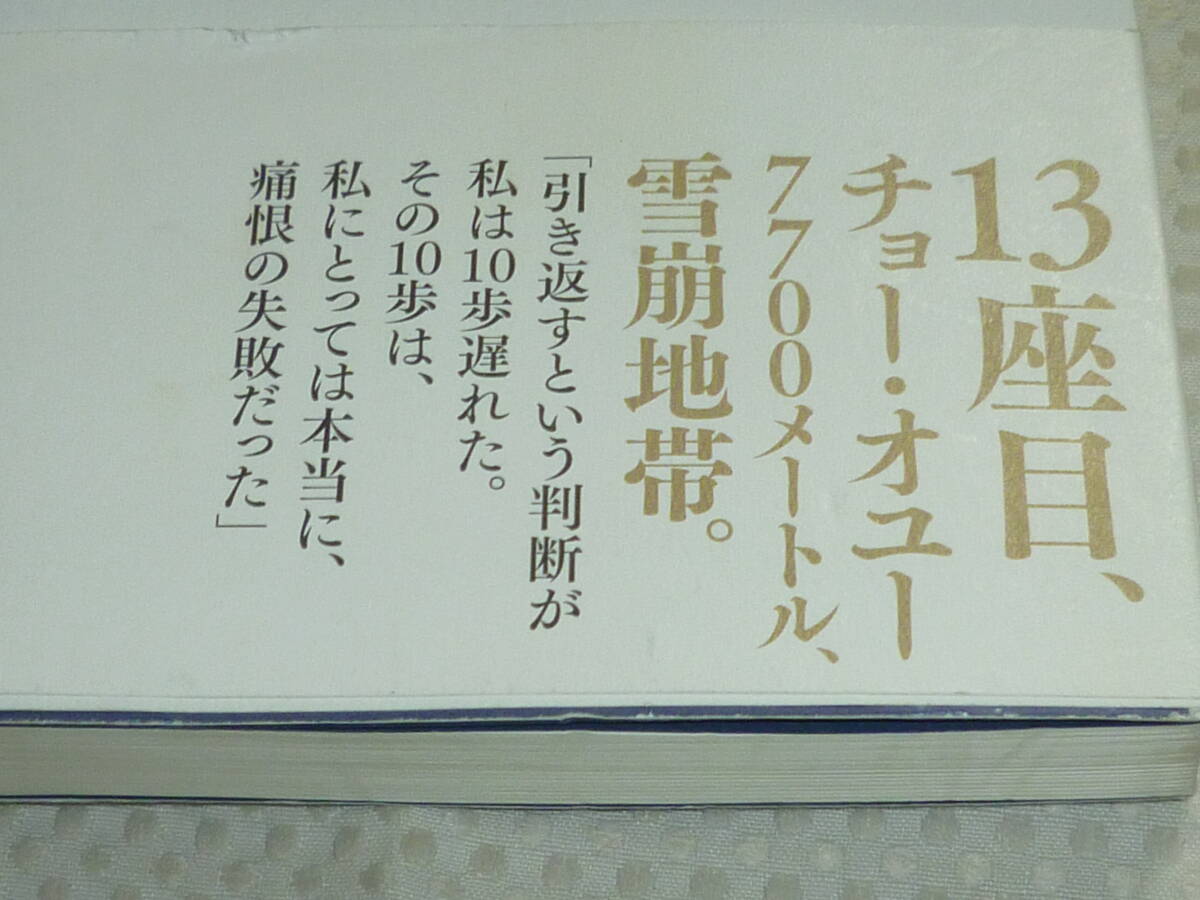 13座目、
チョー・オユー
7700メートル、
雪崩地帯。
「引き返すという判断が
私は10歩遅れた。
その10歩は、
私にとっては本当に、
痛恨の失敗だった」